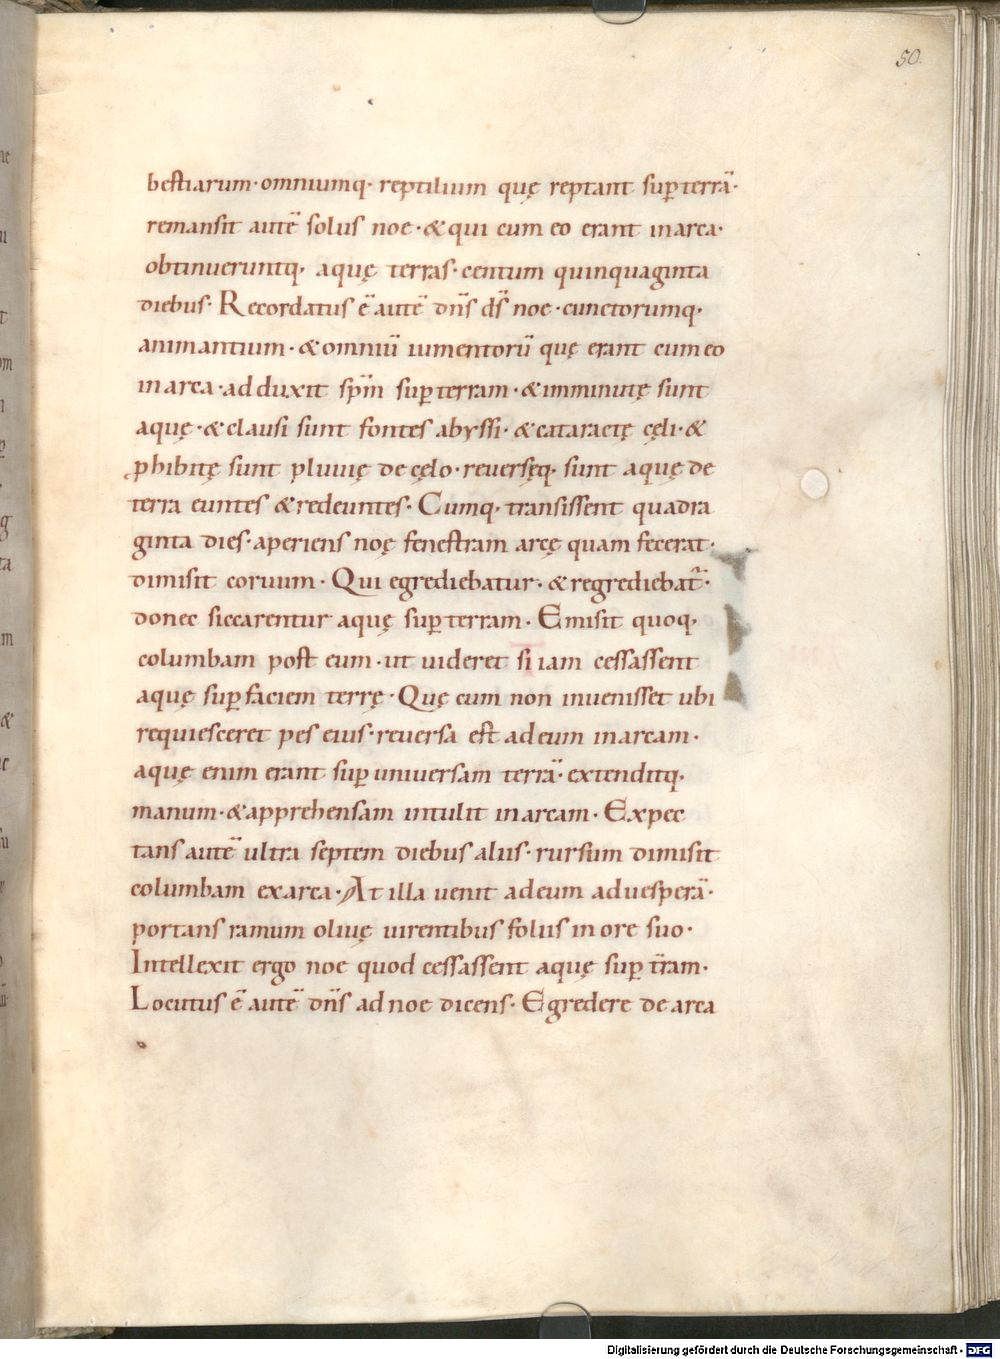 50.
bestiarum· omniumq· reptilium quę reptant sup terrā·
remansit autē solus noe· & qui cum eo erant in arca·
obtinueruntq· aquę terras· centum quinquaginta
diebus· Recordatus ē autē dn̄s ds̄ noe· cunctorumq·
animantium· & omniū iumentorū quę erant cum eo
in arca· adduxit sp̄m sup terram· & imminutę sunt
aquę· & clausi sunt fontes abyssi· & cataractę cęli· &
phibitę sunt pluuię de cęlo· reuersęq· sunt aquę de
terra euntes & redeuntes· Cumq· transissent quadra
ginta dies· aperiens noę fenestram arcę quam fecerat·
dimisit coruum· Qui egrediebatur· & regrediebat·
donec siccarentur aquę sup terram· Emisit quoq·
columbam post eum· ut uideret si iam cessassent
aquę sup faciem terrę· Quę cum non inuenisset ubi
requiesceret pes eius· reuersa est ad eum in arcam·
aquę enim erant sup uniuersam terrā· extenditq·
manum· & apprehensam intulit in arcam· Expec
tans autē ultra septem diebus aliis· rursum dimisit
columbam ex arca· At illa uenit ad eum ad uesperā·
portans ramum oliuę uirentibus foliis in ore suo·
Intellexit ergo noe quod cessassent aquę sup tr̄am·
Locutus ē autē dn̄s ad noe dicens· Egredere de arca
Digitalisierung gefördert durch die Deutsche Forschungsgemeinschaft - DFG